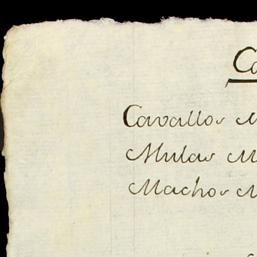 Ca
Cavallos M
Mulas M
Machos M